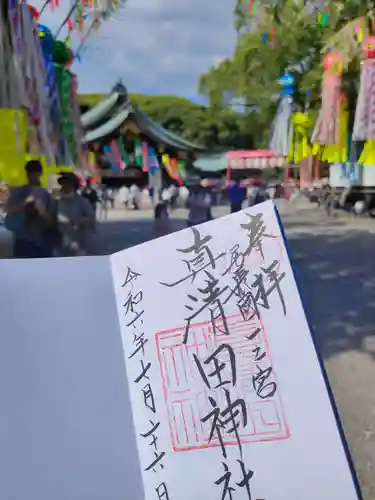 奉拝
尾張國一之宮
真清田神社
令和六年七月二十六